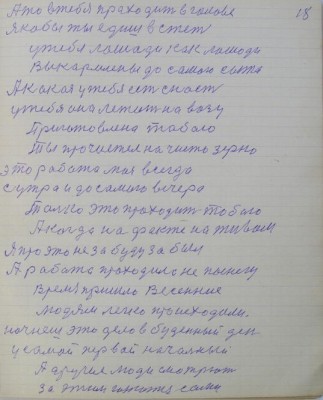 18
А то в тебя проходит в голове
Якобы ты един в степ
у тебя лошади как лошади
Выкармлены до самою сыта
А какая у тебя ест снаст
у тебя она лежит на возу
Приготовлена тобою
Ты прочистел на чисто зерно
это работа моя всегда
с утра и до самого вечера
Только это проходит тобою
А когда на факте на живом
Я про это не забуду забыл
А работа проходило не по
Время пришло Весенние
Людям легко происходили.
почнеш это дело в буденный ден
у самой первой начальный
А другие люди смотрют
за этим сами